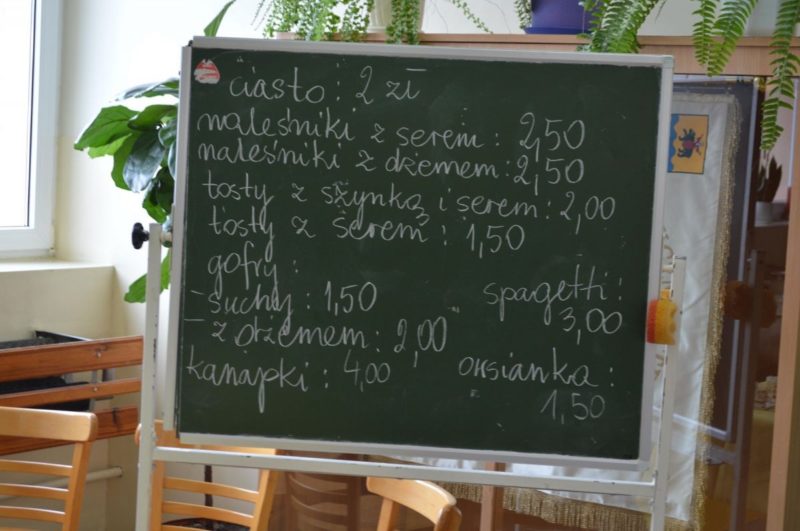 ciasto: 2 zł
naleśniki z serem: 2,50
naleśniki z dżemem: 2,50
tosty z szynką i serem: 2,00
tosty z serem: 1,50
gofry:
- suchy: 1,50
- z dżemem: 2,00
kanapki: 4,00
spagetti:
3,00
owsianka:
1,50